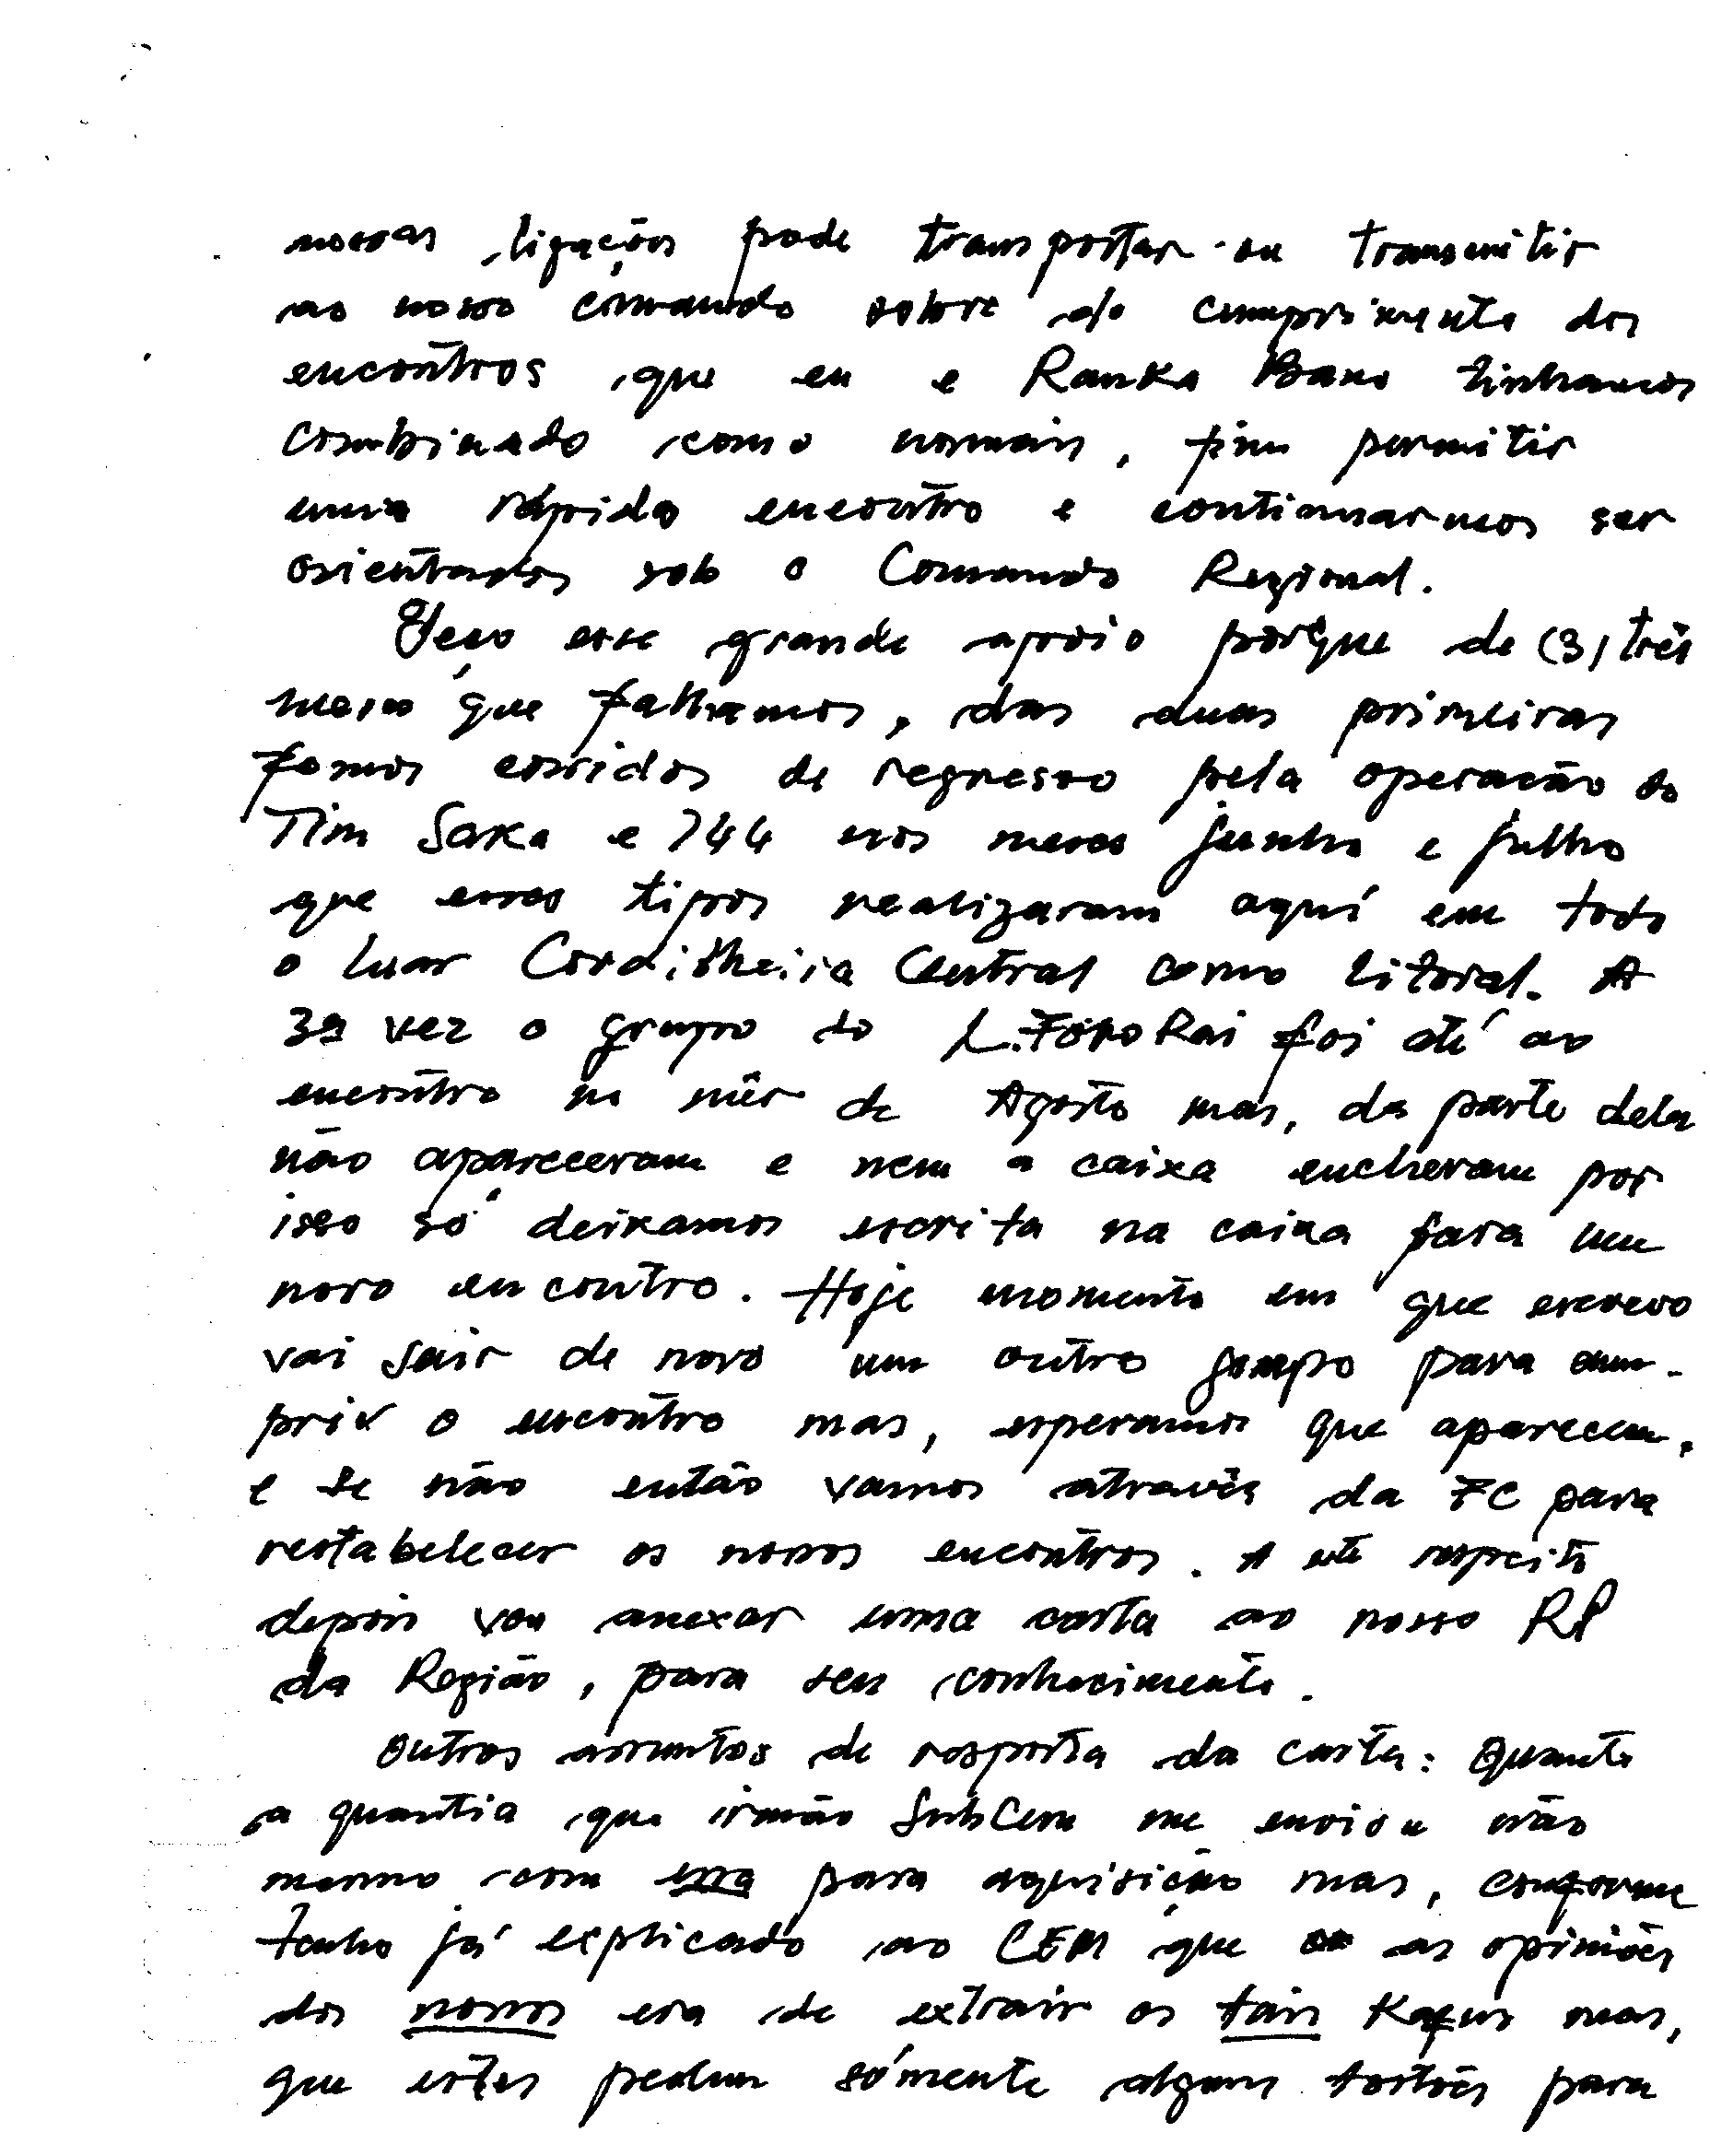 nossas ligações pode transportar ou transmitir
ao nosso comando sobre do cumprimento dos
encontros que eu e Ranka Baxo tinhamos
combinado como normais, fim permitir
uma rápida encontro e continuarmos ser
orientados sob o Comando Regional.
Peço esse grande apoio porque de (3) três
meses que falhamos, das duas primeiras
fomos corridos de regresso pela operacão do
Tim Saka e 744 nos meses junho e julho
que esses tipos realizaram aquí em todo
o luar Cordilheira Central como litoral. A
3ª vez o grupo do L.Foho Rai foi até ao
encontro no mês de Agosto mas, da parte dela
não apareceram e nem a caixa encheram por
isso só deixamos escrita na caixa para um
novo encontro. Hoje momento em que escrevo
vai sair de novo um outro grupo para cum-
prir o encontro mas, esperamos que aparecem,
e se não então vamos através da FC para
restabelecer os nossos encontros. A este respeito
depois vou anexar uma carta ao nosso RP
da Região, para seu conhecimento.
Outros assuntos de resposta da carta: Quanto
a quantia que irmão SubCem me enviou não
mesmo com essa para aquisicão mas, conforme
tenho já explicado ao CEM que as opiniões
dos nossos era de extrair os tais Kafus mas,
que estes pedem sómente alguns tostões para